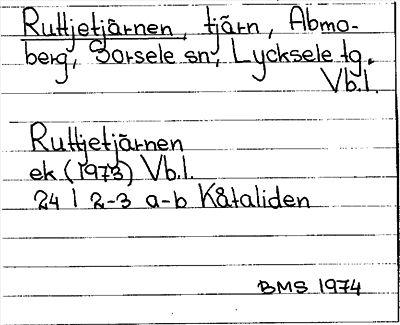 Ruttjetjärnen, tjärn, Abmo-
berg, Sorsele sn, Lycksele tg.
Vb.l.
Ruttjetjärnen
ek (1973) Vb.l.
24 I 2-3 a-b Kåtaliden
BMS 1974